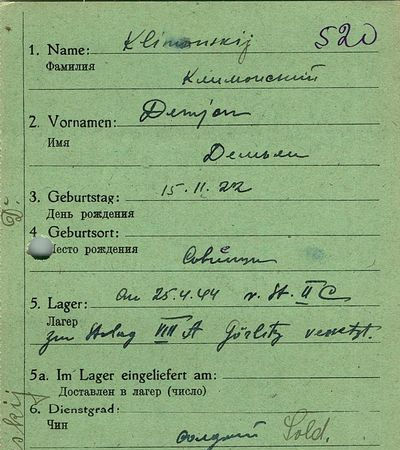 520
1. Name: Klimonskij
Фамилия
Климонский
2. Vornamen: Demjan
Имя
Демьян
3. Geburtstag: 15.11.22
День рождения
4. Geburtsort:
Место рождения
5. Lager: am 25.4.44 v. St. II C
Лагер
zu Stalag VIII A Görlitz versetzt.
5a. Im Lager eingeliefert am:
Доставлен в лагер (число)
6. Dienstgrad:
Чин
солдат Sold.